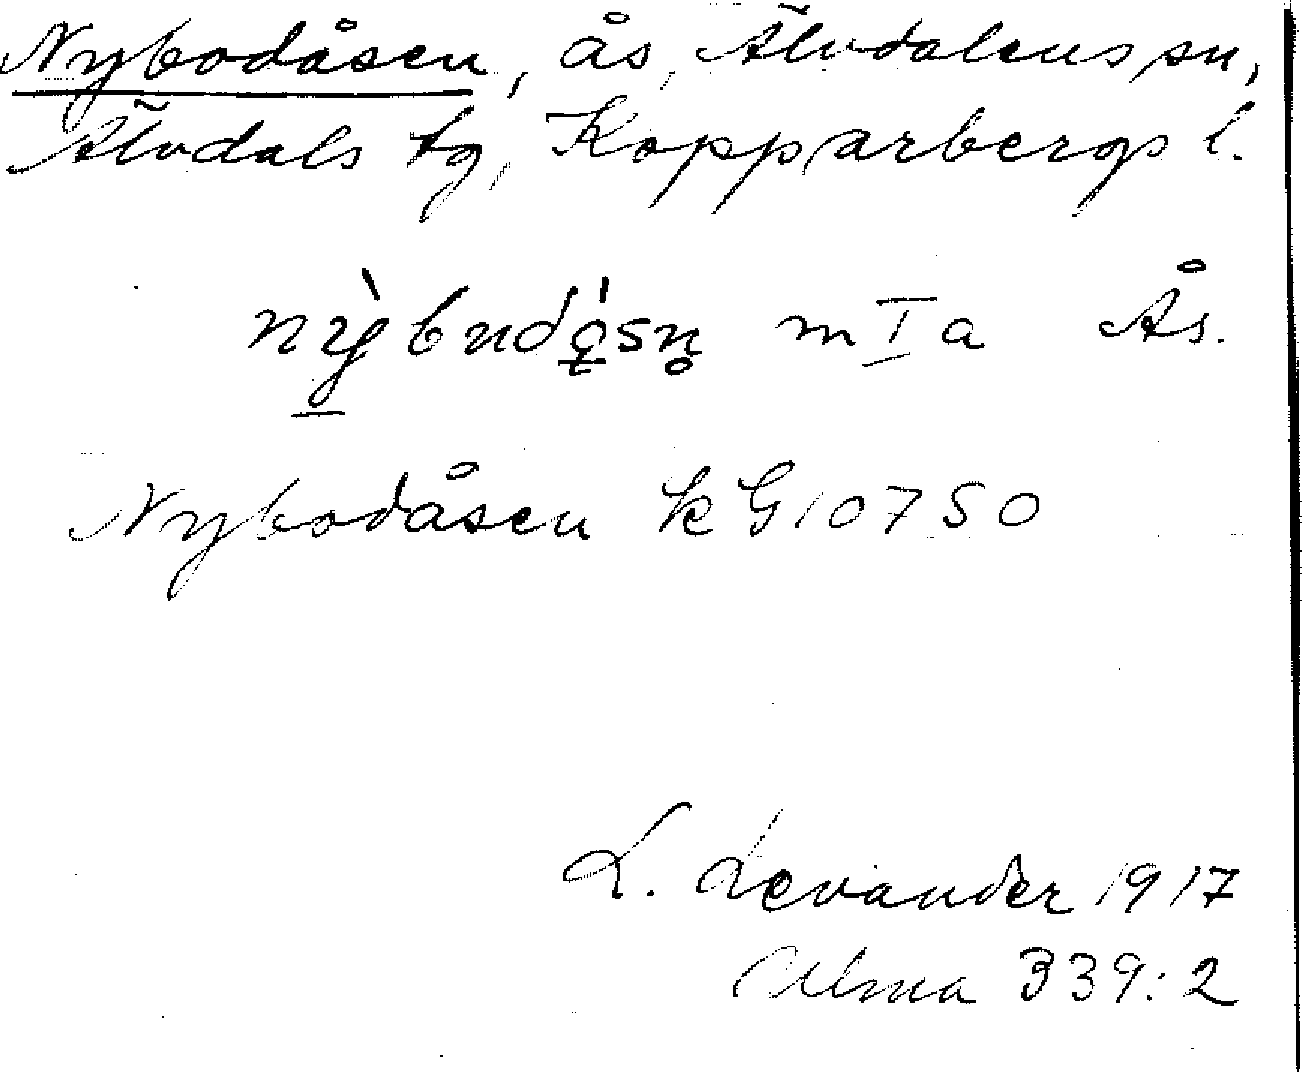 Nybodåsen, ås, Älvdalens sn,
Älvdals tg, Kopparbergs l.
m I a Ås.
Nybodåsen kG10750
L. Levander 1917
Ulma 339:2